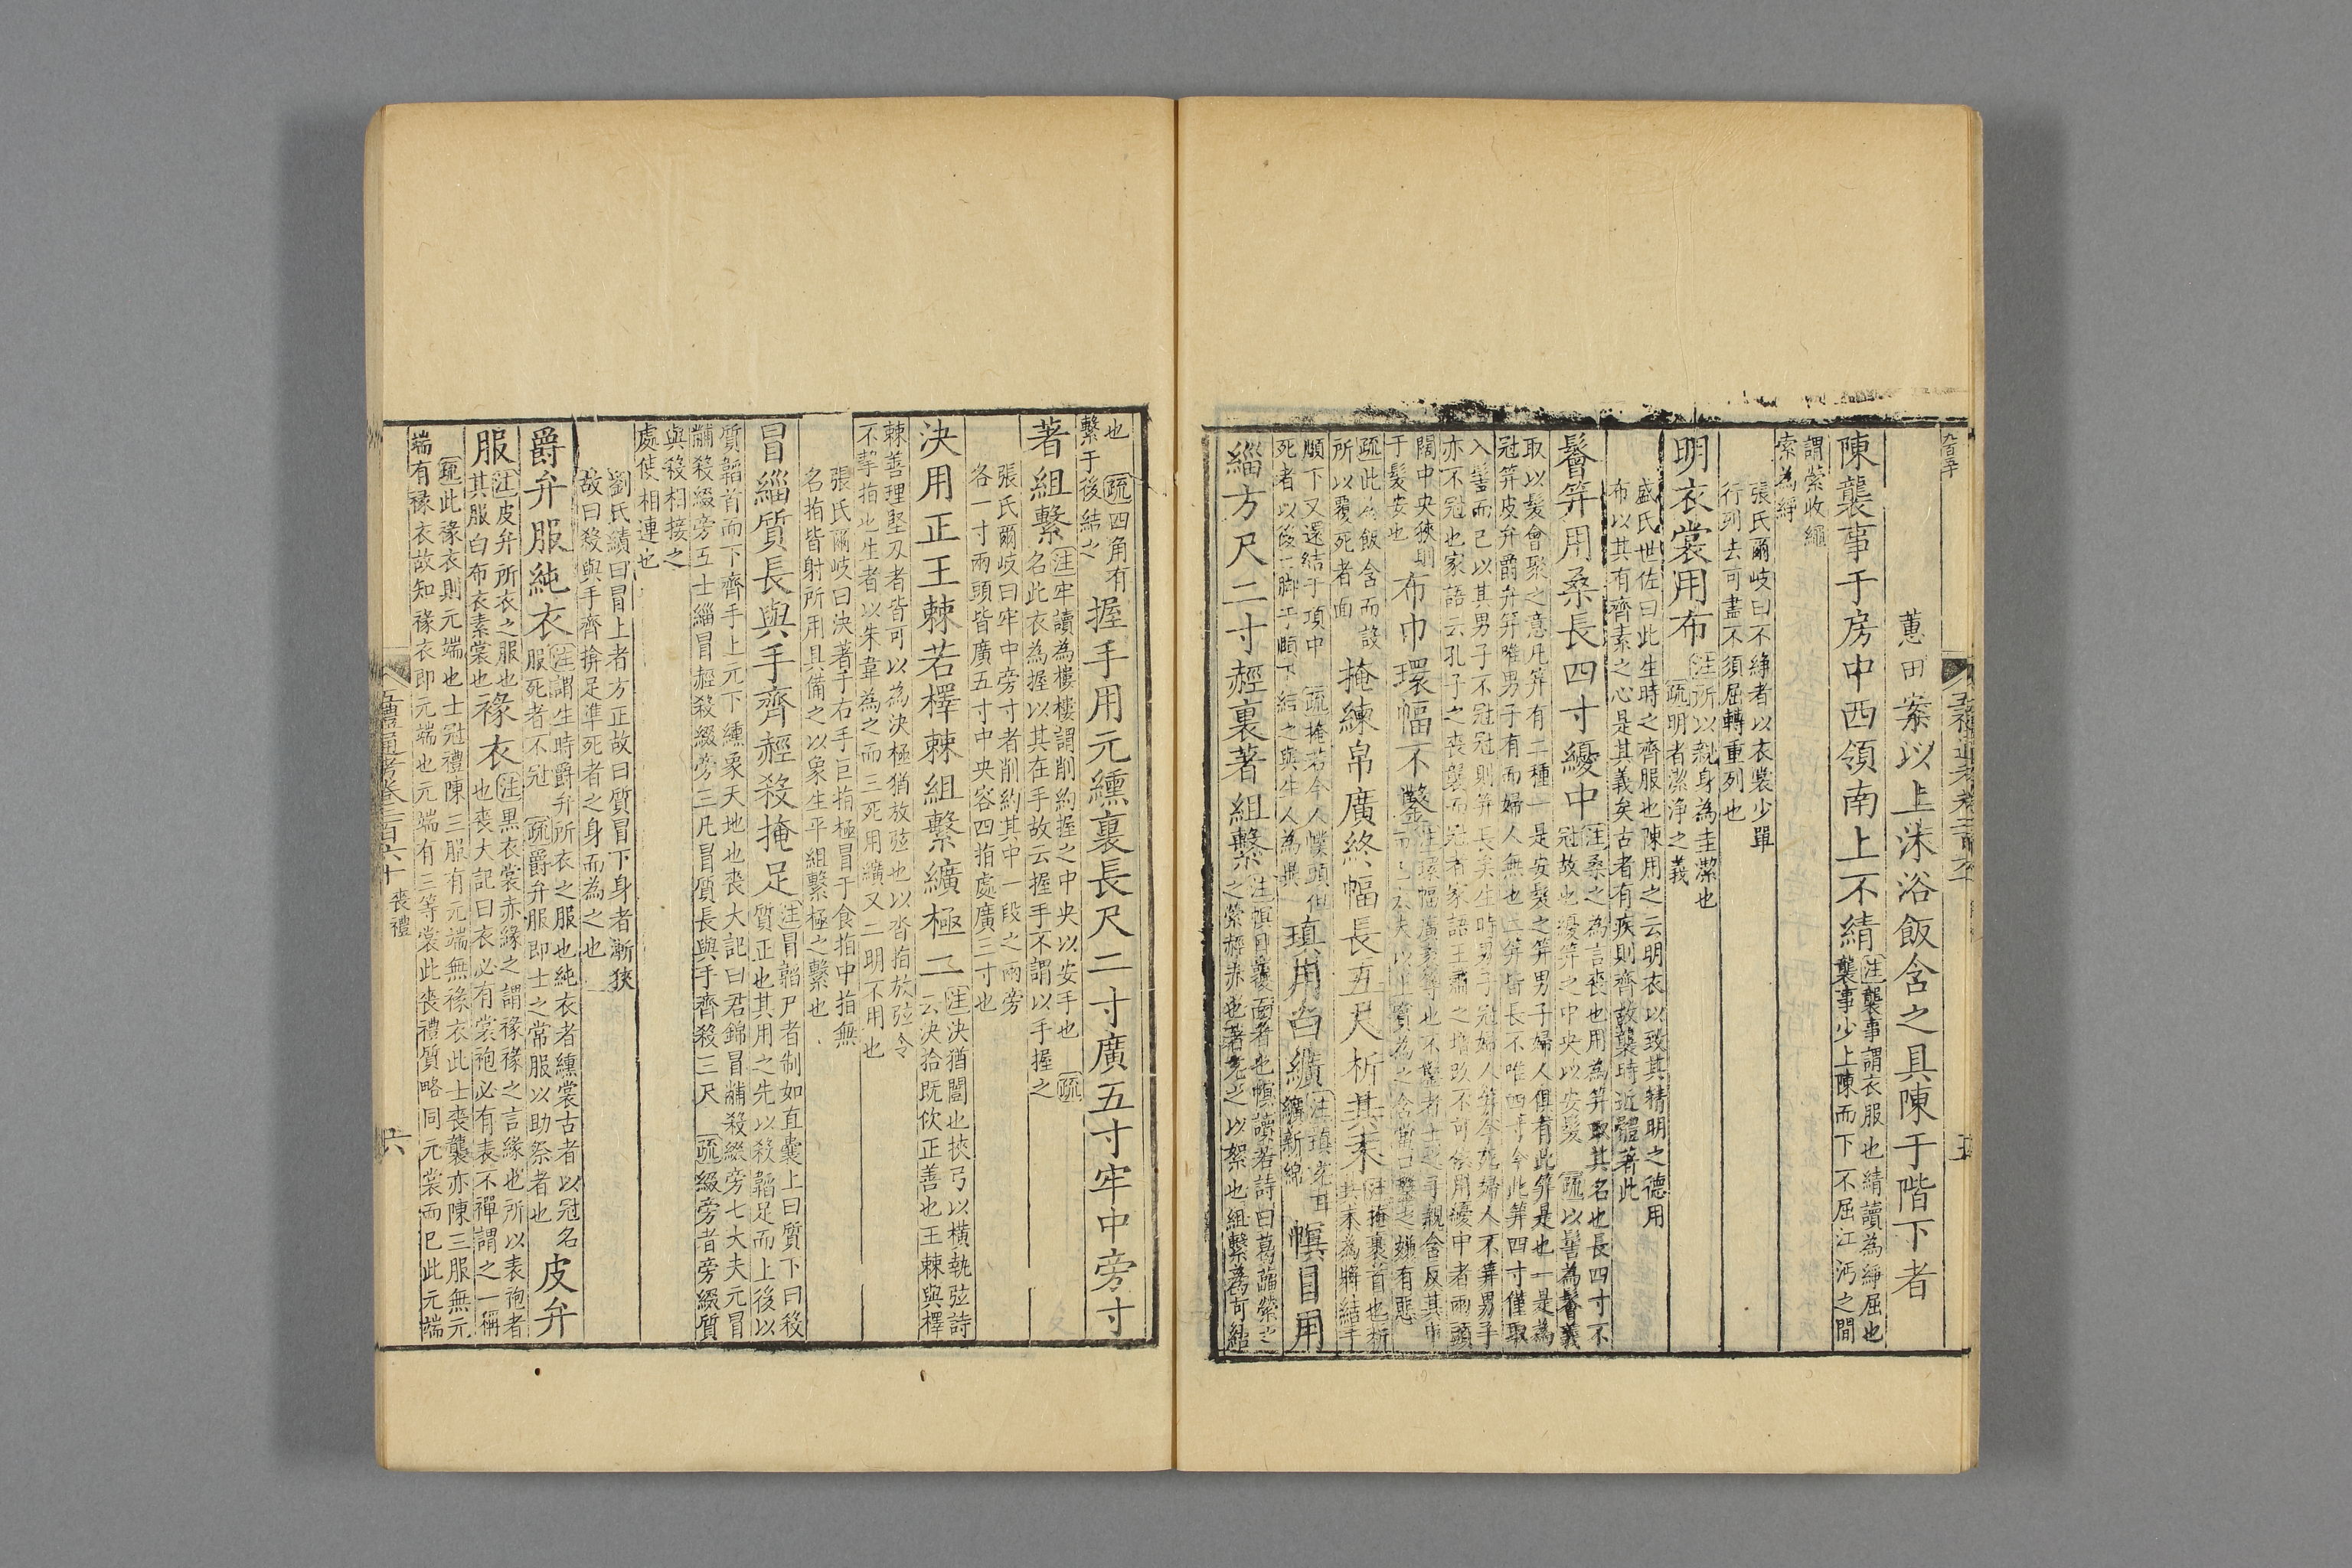 蕙田案以上沬浴飯含之具陳于階下者
陳襲事于房中西領南上不綪注襲事謂衣服也綪讀為絳屈也
襲事少上陳而下不屈江沔之間
謂縈收繩
索為絳
張氏爾岐曰不絳者以衣裳少單
行列去可盡不須屈轉重列也
明衣裳用布注所以親身為圭潔也
疏明者潔淨之義
盛氏世佐曰此生時之齊服也陳用之云明衣以致其精明之德用
布以其有齊素之心是其義矣古者有疾則齊故襲時近體著此
鬠笄用桑長四寸纋中注桑之為言喪也用為笄取其名也長四寸不
冠故也纋笄之中央以安髮疏以髻為鬠義
取以髮會聚之意凡笄有二種一是安髮之笄男子婦人俱有此笄是也一是為
冠笄皮弁爵弁笄唯男子有而婦人無也二笄皆長不唯四寸今此笄四寸僅取
入髻而已以其男子不冠冠則笄長矣生時男子冠婦人笄今死婦人不笄男子
亦不冠也家語云孔子之喪襲而冠者家語王肅之增改不可依用纋中者兩頭
闊中央狹則
于髮安也
布巾環幅不鑿注環幅廣袤等也不鑿者士之子親含反其巾
而已大夫以上賓為之含當口鑿之嫌有惡
疏此為飯含而設
所以覆死者面
掩練帛廣終幅長五尺析其末注掩裹首也析
其末為將結于
頤下又還結于項中疏掩若今人幞頭但
死者以後二腳于頤下結之與生人為異
瑱用白纊注瑱充耳
纊新綿
幎目用
緇方尺二寸䞓裏著組繫注幎目覆面者也幎讀若詩曰葛藟縈之
之縈䞓赤也著充之以絮也組繫為可結
也疏四角有
繫于後結之
握手用元纁裏長尺二寸廣五寸牢中旁寸
著組繫注牢讀為樓樓謂削約握之中央以安手也疏
名此衣為握以其在手故云握手不謂以手握之
張氏爾岐曰牢中旁寸者削約其中一段之兩旁
各一寸兩頭皆廣五寸中央容四指處廣三寸也
決用正王棘若檡棘組繫纊極二注決猶闓也挾弓以橫執弦詩
云決拾既佽正善也王棘與檡
棘善理堅刃者皆可以為決極猶放弦也以沓指放弦令
不挈指也生者以朱韋為之而三死用纊又二明不用也
張氏爾岐曰決著于右手巨指極冒于食指中指無
名指皆射所用具備之以象生平組繫極之繫也
冒緇質長與手齊䞓殺掩足注冒韜尸者制如直囊上曰質下曰殺
質正也其用之先以殺韜足而上後以
質韜首而下齊手上元下纁象天地也喪大記曰君錦冒黼殺綴旁七大夫元冒
黼殺綴旁五士緇冒䞓殺綴旁三凡冒質長與手齊殺三尺疏綴旁者旁綴質
與殺相接之
處使相連也
劉氏績曰冒上者方正故曰質冒下身者漸狹
故曰殺與手齊揜足準死者之身而為之也
爵弁服純衣注謂生時爵弁所衣之服也純衣者纁裳古者以冠名
服死者不冠疏爵弁服即士之常服以助祭者也
皮弁
服注皮弁所衣之服也
其服白布衣素裳也
褖衣注黑衣裳赤緣之謂褖褖之言緣也所以表袍者
也喪大記曰衣必有裳袍必有表不襌謂之一稱
疏此褖衣則元端也士冠禮陳三服有元端無褖衣此士喪襲亦陳三服無元
端有褖衣故知褖衣即元端也元端有三等裳此喪禮質略同元裳而已此元端
五禮通考卷二百六十 喪禮
六